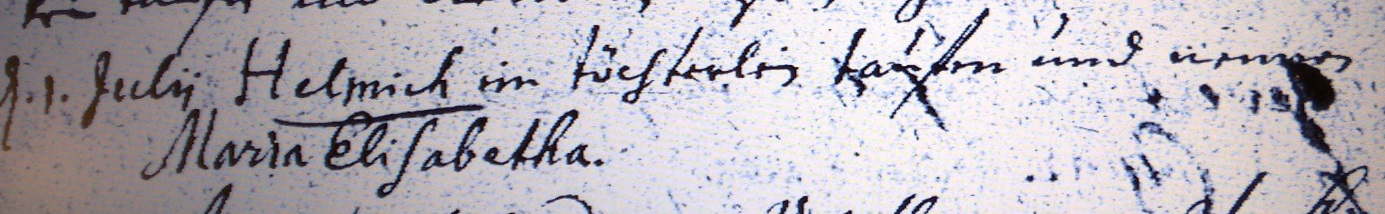 d. 1. Julij Helmich im töchterlin taufen und nennen
Maria Elisabetha.